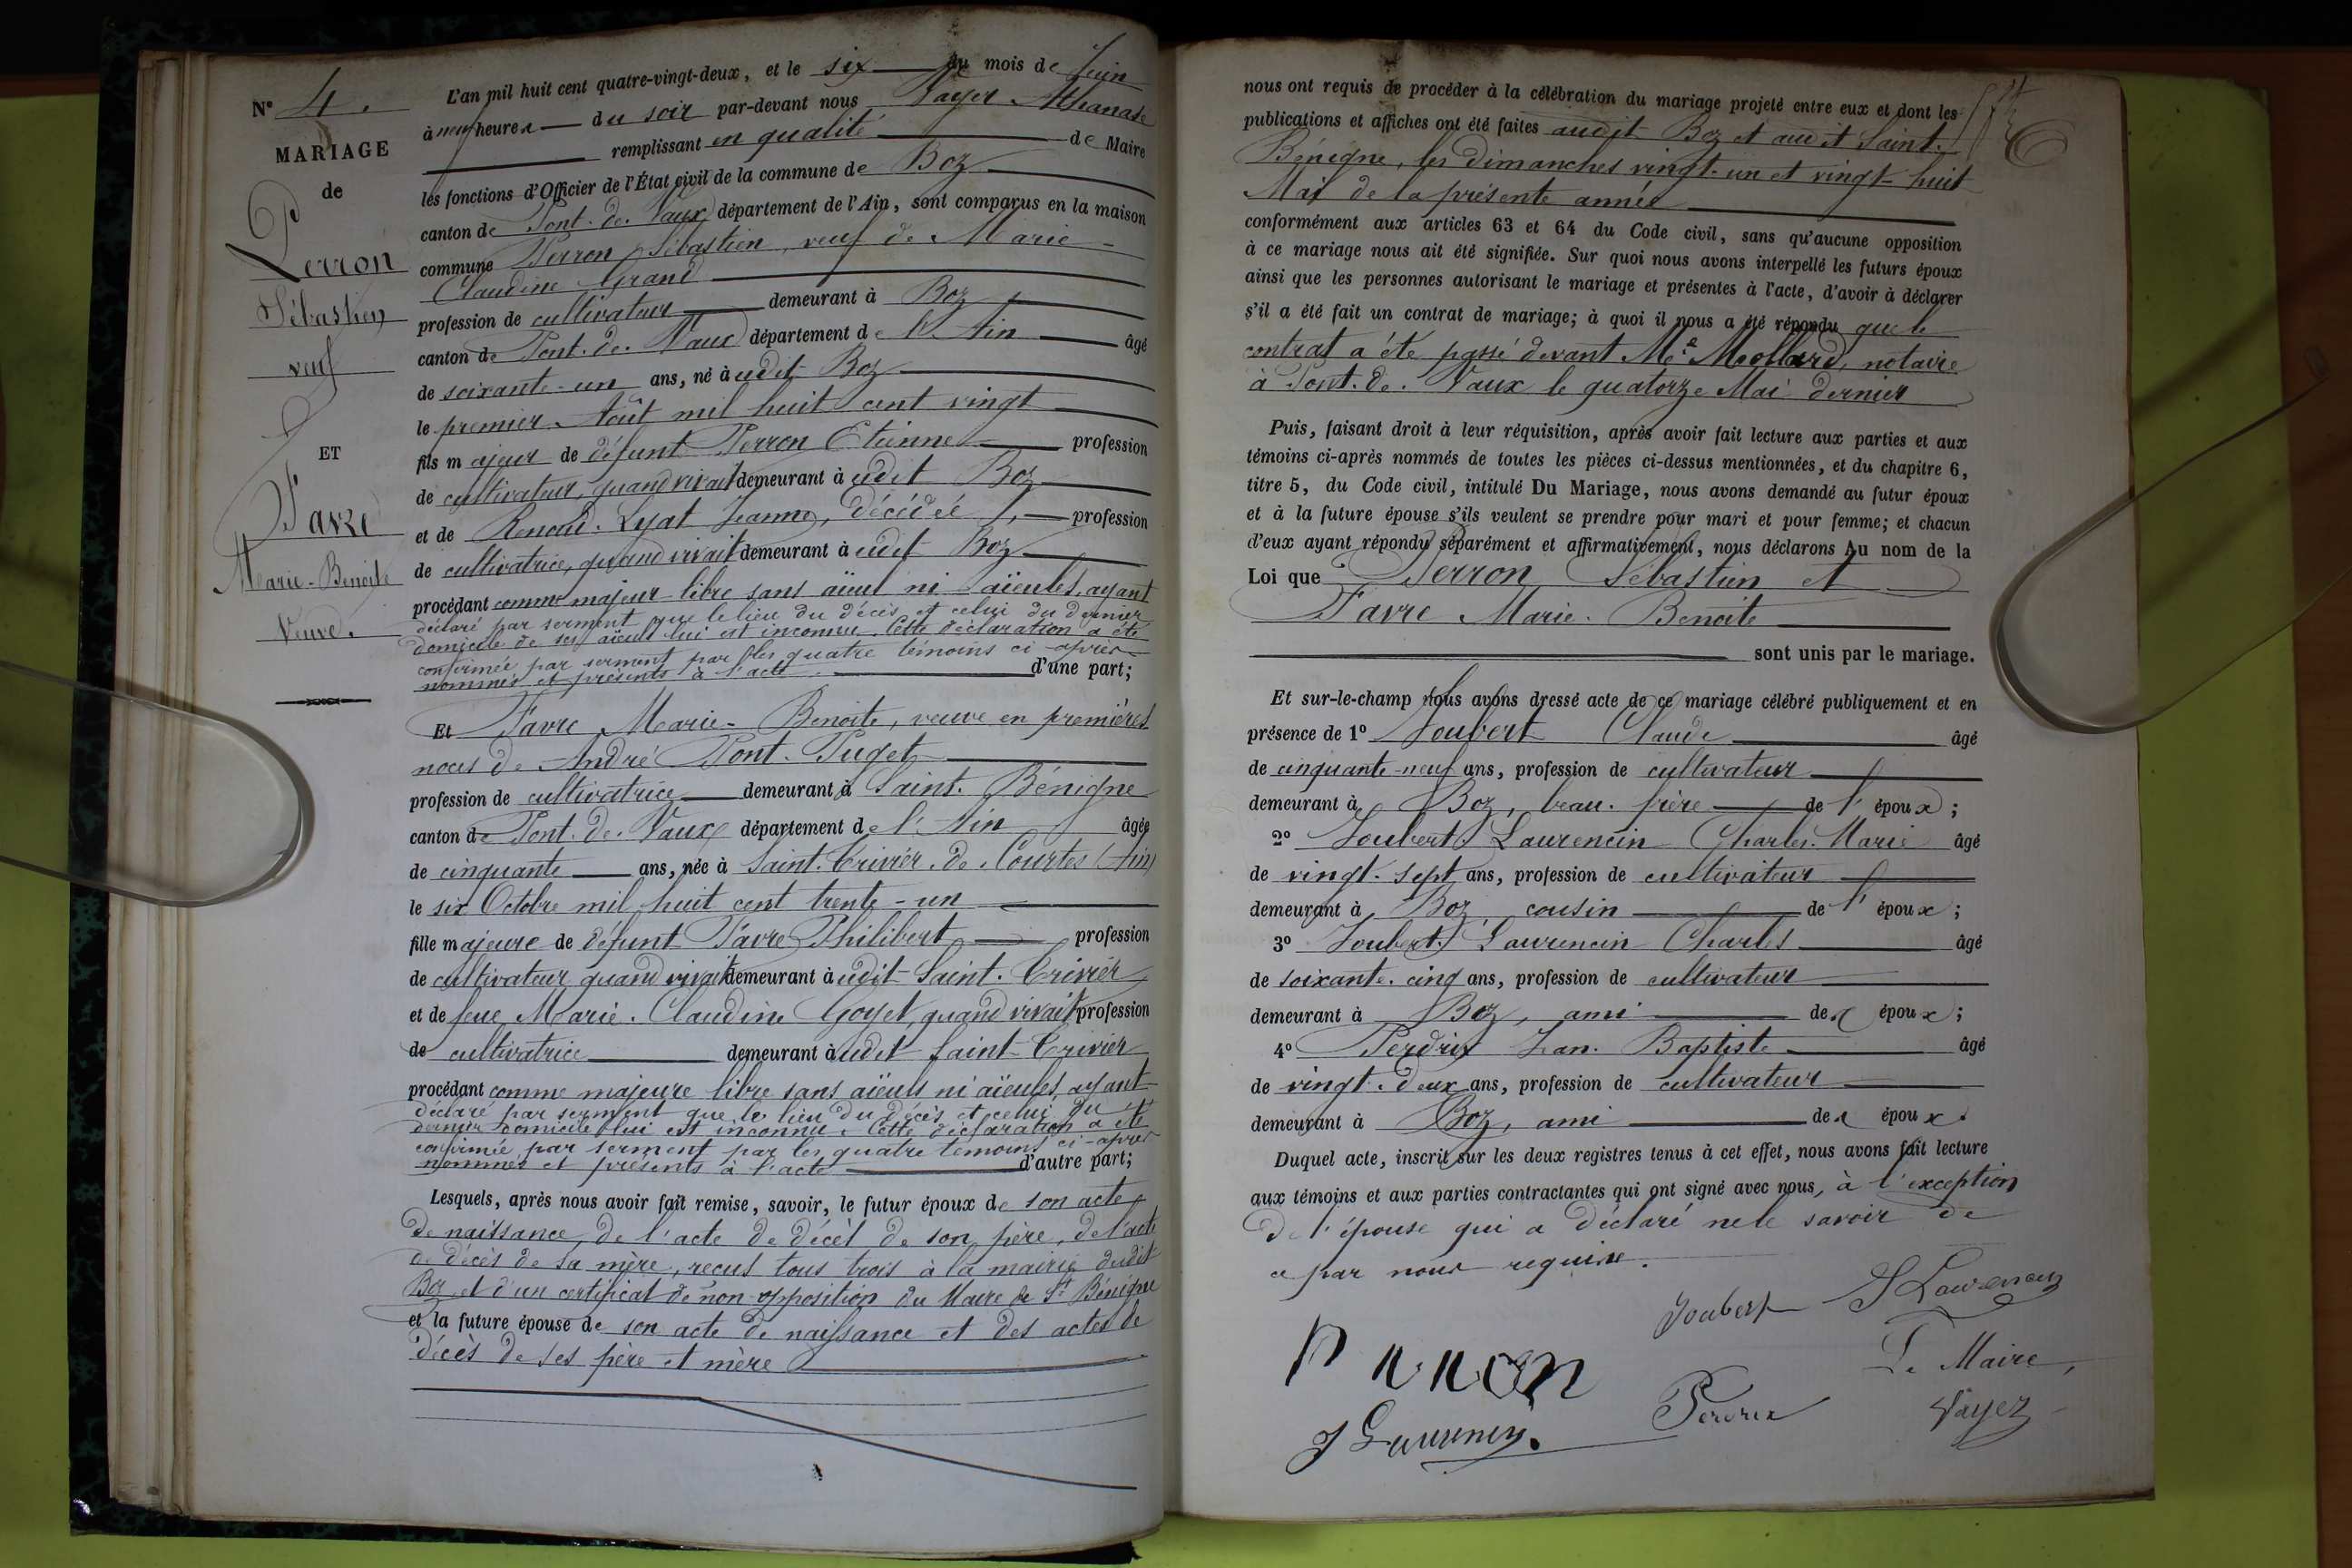 N° 4.
MARIAGE
de
Perron
Sébastien
veuf
ET
Favre
Marie-Benoite
Veuve.
L'an mil huit cent quatre-vingt-deux, et le six du mois de Juin
à neuf heures du soir par-devant nous Vayer Athanase
remplissant en qualité de Maire
les fonctions d'Officier de l'État civil de la commune de Boz
canton de Pont-de-Vaux département de l'Ain, sont comparus en la maison
commune Perron Sébastien, veuf de Marie-
Claudine Grand
profession de cultivateur demeurant à Boz
canton de Pont-de-Vaux département de l'Ain âgé
de soixante-un ans, né à udit Boz
le premier Août mil huit cent vingt
fils majeur de défunt Perron Etienne profession
de cultivateur, quand vivait demeurant à udit Boz
et de Renoud-Lyat Jeanne, décédée profession
de cultivatrice, quand vivait demeurant à udit Boz
procédant comme majeur libre sans aïeul ni aïeules, ayant
déclaré par serment que le lieu du décès et celui du dernier
domicile de ses aïeuls lui est inconnu. Cette déclaration a été
confirmée par serment par les quatre témoins ci-après
nommés et présents à l'acte d'une part;
Et Favre Marie-Benoite, veuve en premières
noces de André Pont-Puget
profession de cultivatrice demeurant à Saint-Bénigne
canton de Pont-de-Vaux département de l'Ain âgée
de cinquante ans, née à Saint-Trivier-de-Courtes (Ain)
le six Octobre mil huit cent trente-un
fille majeure de défunt Favre Philibert profession
de cultivateur quand vivait demeurant à udit Saint-Trivier
et de feue Marie-Claudine Goyet, quand vivait profession
de cultivatrice demeurant à udit Saint-Trivier
procédant comme majeure libre sans aïeuls ni aïeules, ayant
déclaré par serment que le lieu du décès et celui du
dernier domicile lui est inconnu. Cette déclaration a été
confirmée par serment par les quatre témoins ci-après
nommés et présents à l'acte d'autre part;
Lesquels, après nous avoir fait remise, savoir, le futur époux de son acte
de naissance, de l'acte de décès de son père, de l'acte
de décès de sa mère, reçus tous trois à la mairie dudit
Boz et d'un certificat de non-opposition du Maire de St Bénigne
et la future épouse de son acte de naissance et des actes de
décès de ses père et mère
nous ont requis de procéder à la célébration du mariage projeté entre eux et dont les
publications et affiches ont été faites audit Boz et audit Saint-
Bénigne, les dimanches vingt-un et vingt-huit
Mai de la présente année
conformément aux articles 63 et 64 du Code civil, sans qu'aucune opposition
à ce mariage nous ait été signifiée. Sur quoi nous avons interpellé les futurs époux
ainsi que les personnes autorisant le mariage et présentes à l'acte, d'avoir à déclarer
s'il a été fait un contrat de mariage; à quoi il nous a été répondu que le
contrat a été passé devant Me Mollard, notaire
à Pont-de-Vaux le quatorze Mai dernier
Puis, faisant droit à leur réquisition, après avoir fait lecture aux parties et aux
témoins ci-après nommés de toutes les pièces ci-dessus mentionnées, et du chapitre 6,
titre 5, du Code civil, intitulé Du Mariage, nous avons demandé au futur époux
et à la future épouse s'ils veulent se prendre pour mari et pour femme; et chacun
d'eux ayant répondu séparément et affirmativement, nous déclarons Au nom de la
Loi que Perron Sébastien et
Favre Marie-Benoite
sont unis par le mariage.
Et sur-le-champ nous avons dressé acte de ce mariage célébré publiquement et en
présence de 1° Joubert Claude âgé
de cinquante-neuf ans, profession de cultivateur
demeurant à Boz, beau-frère de l'époux;
2° Joubert-Laurencin Charles-Marie âgé
de vingt-sept ans, profession de cultivateur
demeurant à Boz, cousin de l'époux;
3° Joubert-Laurencin Charles âgé
de soixante-cinq ans, profession de cultivateur
demeurant à Boz, ami des époux;
4° Perdrix Jean-Baptiste âgé
de vingt-deux ans, profession de cultivateur
demeurant à Boz, ami des époux.
Duquel acte, inscrit sur les deux registres tenus à cet effet, nous avons fait lecture
aux témoins et aux parties contractantes qui ont signé avec nous, à l'exception
de l'épouse qui a déclaré ne le savoir de
ce par nous requise.
Joubert J Laurencin
Perron Le Maire,
J Laurencin Perdrix Vayer